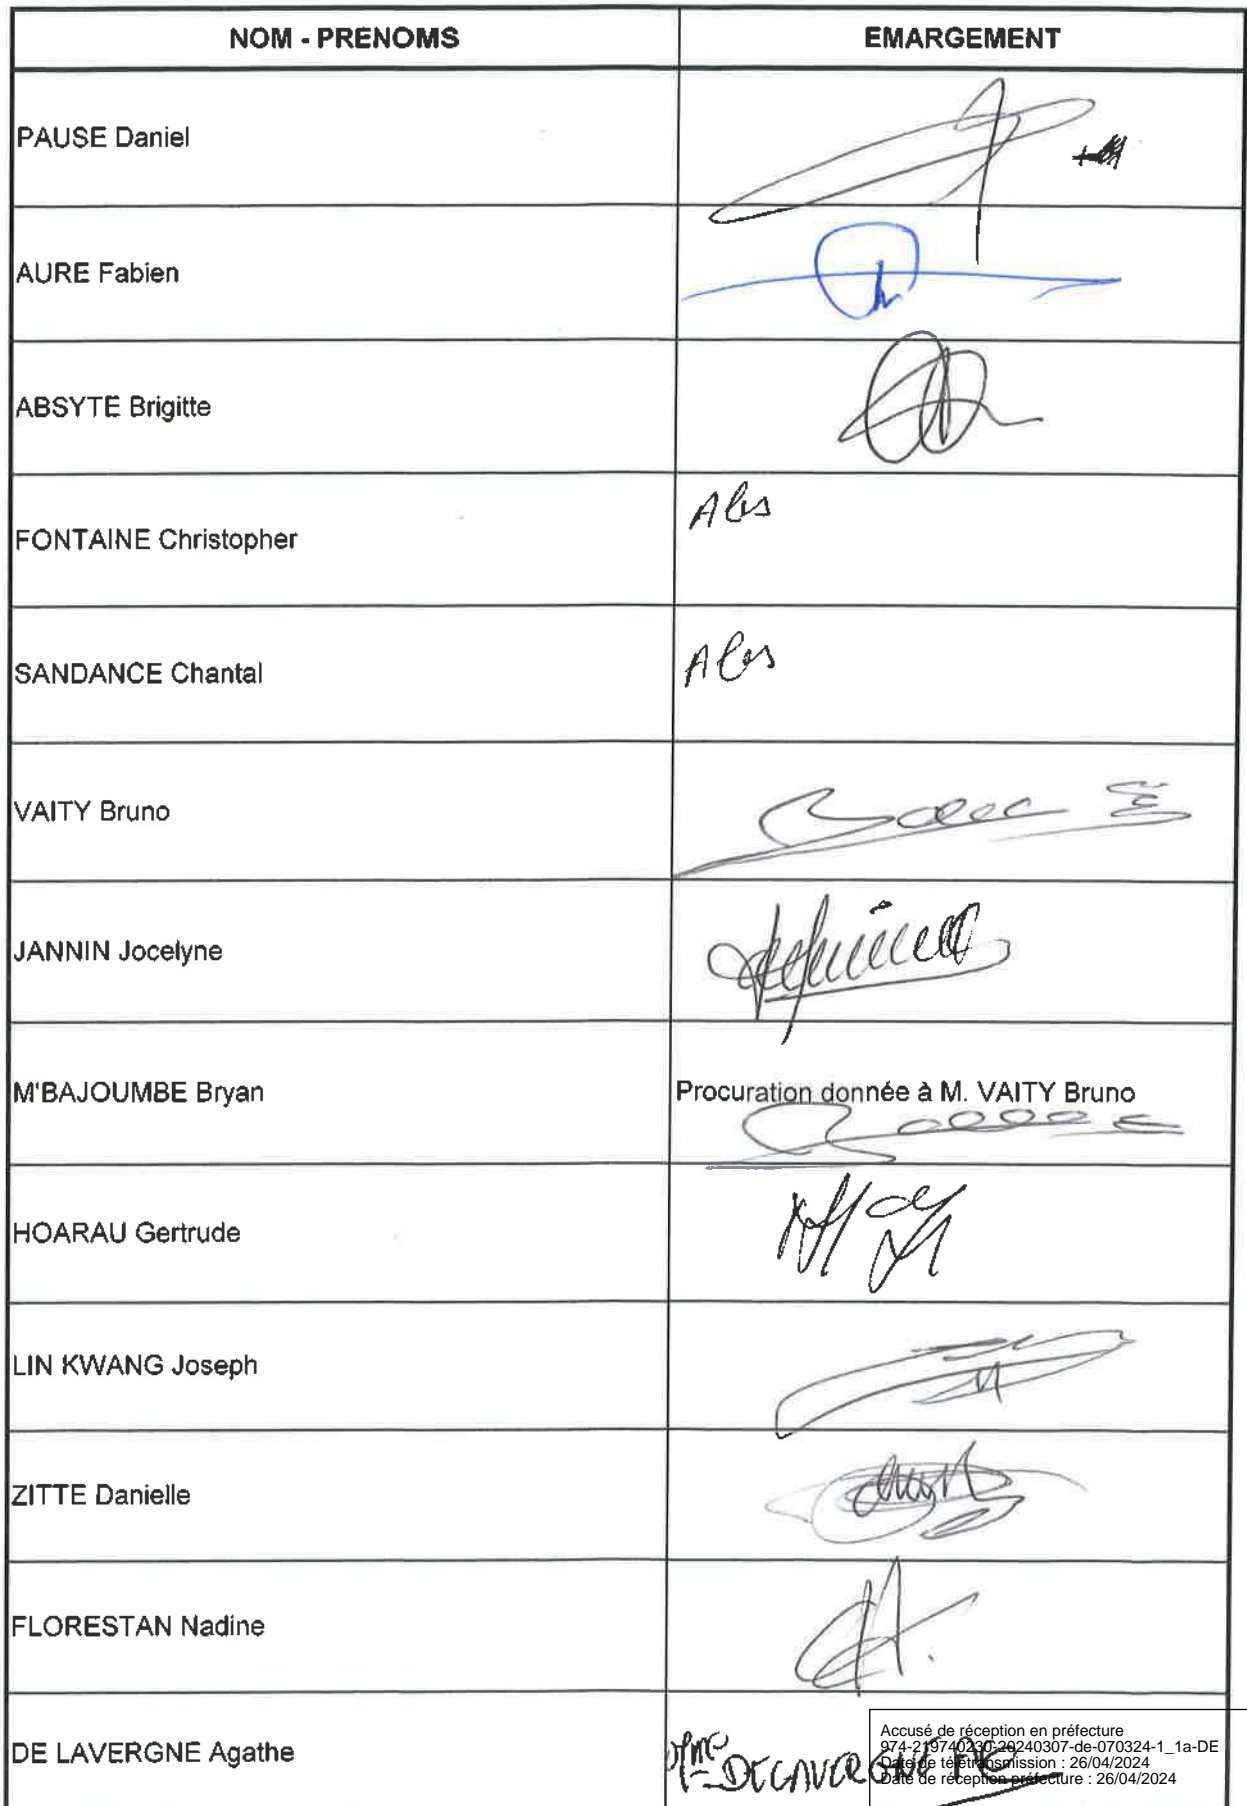 NOM - PRENOMS EMARGEMENT
PAUSE Daniel
AURE Fabien
ABSYTE Brigitte
FONTAINE Christopher Abs
SANDANCE Chantal Abs
VAITY Bruno
JANNIN Jocelyne
M'BAJOUMBE Bryan Procuration donnée à M. VAITY Bruno
HOARAU Gertrude
LIN KWANG Joseph
ZITTE Danielle
FLORESTAN Nadine
DE LAVERGNE Agathe Mme DELAVERGNE
Accusé de réception en préfecture
974-219740230-20240307-de-070324-1_1a-DE
Date de télétransmission : 26/04/2024
Date de réception préfecture : 26/04/2024